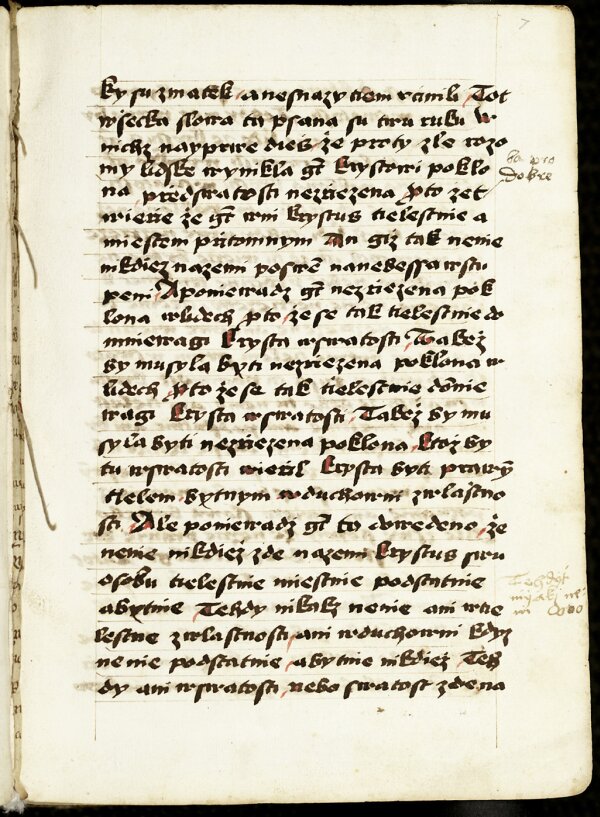 7
ky su zmatek a nesnazy tiem vcinili Tot
wssecka slowa ta psana su twu ruku W
nichz nayprwe dieis ze proty zle rozo
my lidske wynikla gt Krystowi poklo
na przedswatosti nezriezena proto zet
wierie ze gt wni Krystus tielestnie a
miestem pritomnym An giz tak nenie
nikdiez nazemi posré nanebessa wstu
peni A poniewadz gt nezriezena pok
lona wlidech proto ze se tak tielestnie do
mniewagi Krysta wswatosti Takez
by musyla byti nezriezena poklona w
lidech proto ze se tak tielestnie domnie
wagi Krysta wswatosti Takez by mu
syla byti nezriezena poklona Ktoz by
tu wswatosti wieril Krysta byti prawym
tielem bytnym wduchowni zwlastno
sti Ale poniewadz gt to dowedeno ze
nenie nikdiez zde nazemi Krystus swu
osobu tielestnie miestnie podstatnie
a bytnie Tehdy nikakz nenie ani wtie
lestne zwlastnosti ani wduchowni kdyz
nenie podstatnie a bytnie nikdiez Teh
dy ani wswatosti nebo swatost zde na
bo pro
dobre